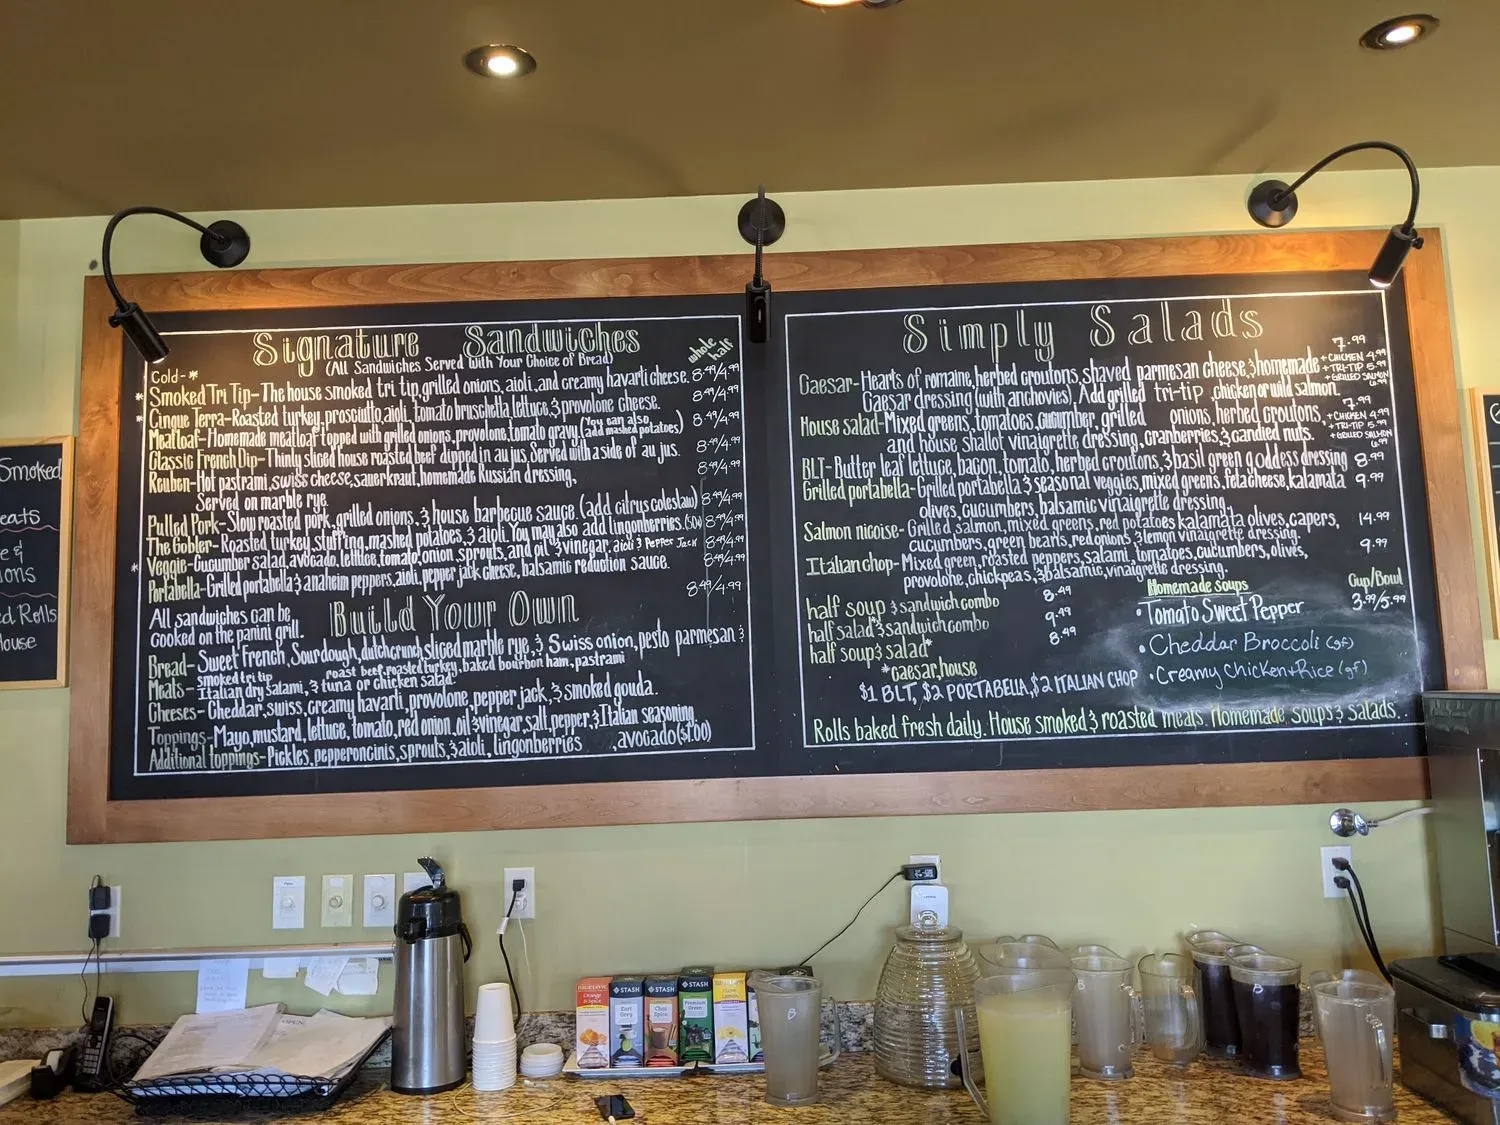 Signature Sandwiches
(All Sandwiches Served With Your Choice of Bread)
whole
half
Cold-*
*Smoked Tri Tip-The house smoked tri tip, grilled onions, aioli, and creamy havarti cheese. 8.49/4.99
*Cinque Terra-Roasted turkey, prosciutto, aioli, tomato bruschetta, lettuce, & provolone cheese. 8.49/4.99
Meatloaf-Homemade meatloaf topped with grilled onions, provolone, tomato gravy. (You can also add mashed potatoes) 8.49/4.99
Classic French Dip-Thinly sliced house roasted beef dipped in au jus. Served with a side of au jus. 8.49/4.99
Reuben-Hot pastrami, swiss cheese, sauerkraut, homemade Russian dressing, 8.49/4.99
Served on marble rye.
Pulled Pork-Slow roasted pork, grilled onions, & house barbecue sauce. (add citrus coleslaw) 8.49/4.99
The Gobler-Roasted turkey, stuffing, mashed potatoes, & aioli. You may also add lingonberries. 8.49/4.99
*Veggie-Cucumber salad, avocado, lettuce, tomato, onion, sprouts, and oil & vinegar, aioli & Pepper Jack 8.49/4.99
Portabella-Grilled portabella & anaheim peppers, aioli, pepper jack cheese, balsamic reduction sauce. 8.49/4.99
All sandwiches can be
cooked on the panini grill.
Build Your Own
Bread-Sweet French, Sourdough, dutch crunch, sliced marble rye, & Swiss onion, pesto parmesan &
smoked tri tip roast beef, roasted turkey, baked bourbon ham, pastrami
Meats-Italian dry salami, & tuna or chicken salad.
Cheeses-Cheddar, swiss, creamy havarti, provolone, pepper jack, & smoked gouda.
Toppings-Mayo, mustard, lettuce, tomato, red onion, oil & vinegar, salt, pepper, & Italian seasoning
Additional toppings-Pickles, pepperoncinis, sprouts, & aioli, lingonberries ,avocado ($1.00)
Simply Salads
7.99
Caesar-Hearts of romaine, herbed croutons, shaved parmesan cheese, & homemade
+CHICKEN 4.99
+TRI-TIP 5.99
+GRILLED SALMON 6.99
Caesar dressing (with anchovies). Add grilled tri-tip, chicken or wild salmon.
7.99
House salad-Mixed greens, tomatoes, cucumber, grilled onions, herbed croutons,
+CHICKEN 4.99
+TRI-TIP 5.99
+GRILLED SALMON 6.99
and house shallot vinaigrette dressing, cranberries & candied nuts.
BLT-Butter leaf lettuce, bacon, tomato, herbed croutons, & basil green goddess dressing 8.99
Grilled portabella-Grilled portabella & seasonal veggies, mixed greens, feta cheese, kalamata 9.99
olives, cucumbers, balsamic vinaigrette dressing.
Salmon nicoise-Grilled salmon, mixed greens, red potatoes, kalamata olives, capers, 14.99
cucumbers, green beans, red onions & lemon vinaigrette dressing.
Italian chop-Mixed green, roasted peppers, salami, tomatoes, cucumbers, olives, 9.99
provolone, chickpeas, & balsamic vinaigrette dressing.
half soup & sandwich combo 8.49
half salad* & sandwich combo 9.49
half soup & salad* 8.49
*caesar, house
$1 BLT, $2 PORTABELLA, $2 ITALIAN CHOP
Homemade soups
Cup/Bowl
• Tomato Sweet Pepper 3.99/5.99
• Cheddar Broccoli (gf)
• Creamy Chicken + Rice (gf)
Rolls baked fresh daily. House smoked & roasted meats. Homemade soups & salads.
Smoked
STASH
STASH
STASH
Earl Grey
Chai Spice
Premium Green
B
B